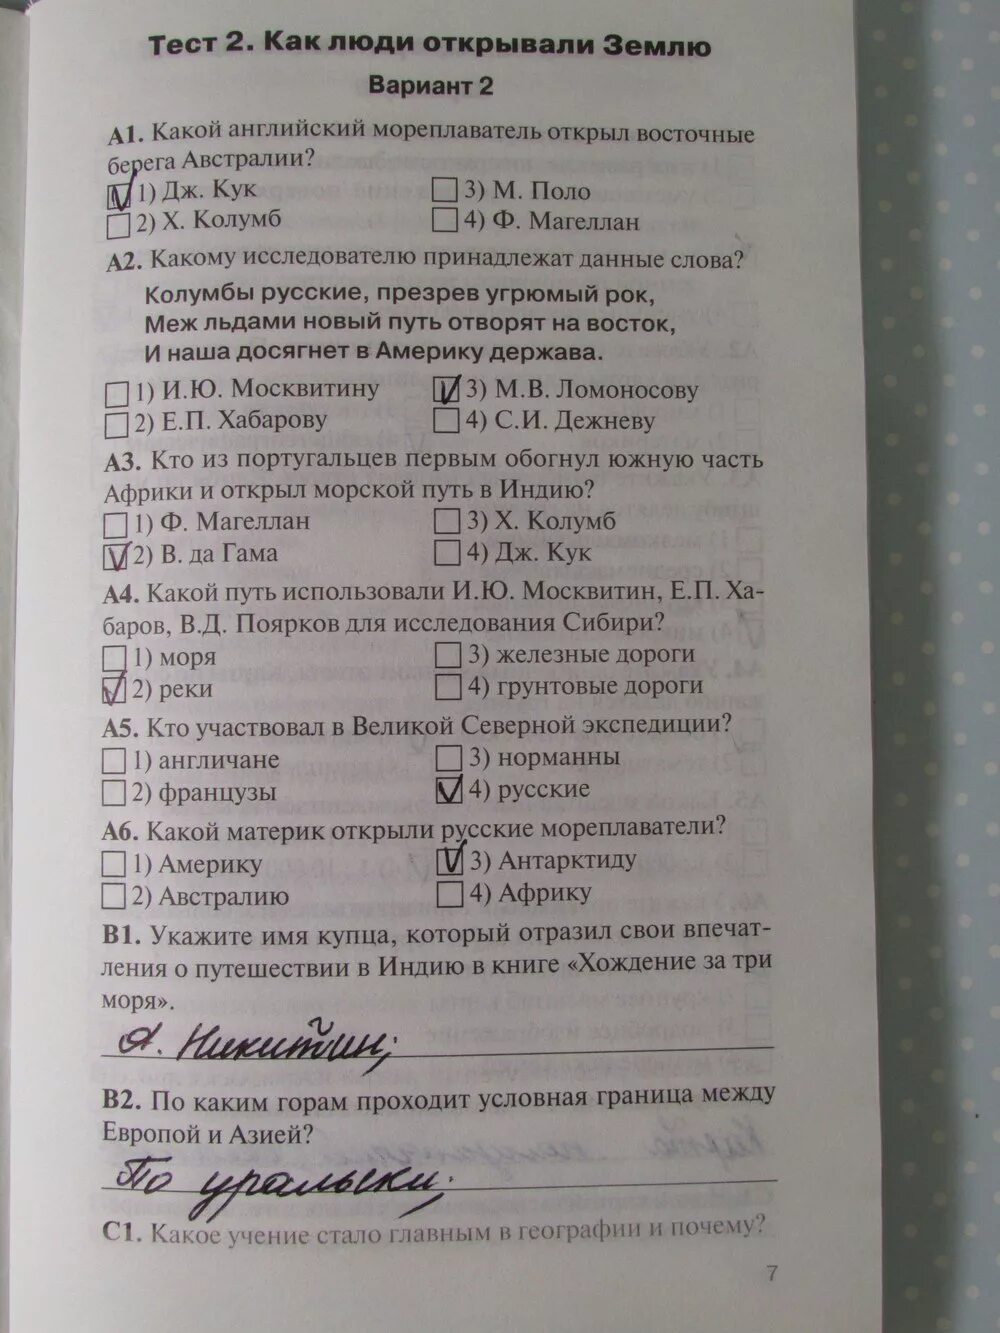 Тест 2. Как люди открывали Землю
Вариант 2
А1. Какой английский мореплаватель открыл восточные
берега Австралии?
1) Дж. Кук
3) М. Поло
2) Х. Колумб
4) Ф. Магеллан
А2. Какому исследователю принадлежат данные слова?
Колумбы русские, презрев угрюмый рок,
Меж льдами новый путь отворят на восток,
И наша досягнет в Америку держава.
1) И.Ю. Москвитину
3) М.В. Ломоносову
2) Е.П. Хабарову
4) С.И. Дежневу
А3. Кто из португальцев первым обогнул южную часть
Африки и открыл морской путь в Индию?
1) Ф. Магеллан
3) Х. Колумб
2) В. да Гама
4) Дж. Кук
А4. Какой путь использовали И.Ю. Москвитин, Е.П. Ха-
баров, В.Д. Поярков для исследования Сибири?
1) моря
3) железные дороги
2) реки
4) грунтовые дороги
А5. Кто участвовал в Великой Северной экспедиции?
1) англичане
3) норманны
2) французы
4) русские
А6. Какой материк открыли русские мореплаватели?
1) Америку
3) Антарктиду
2) Австралию
4) Африку
В1. Укажите имя купца, который отразил свои впечат-
ления о путешествии в Индию в книге «Хождение за три
моря».
А. Никитин;
В2. По каким горам проходит условная граница между
Европой и Азией?
По уральски.
С1. Какое учение стало главным в географии и почему?
7